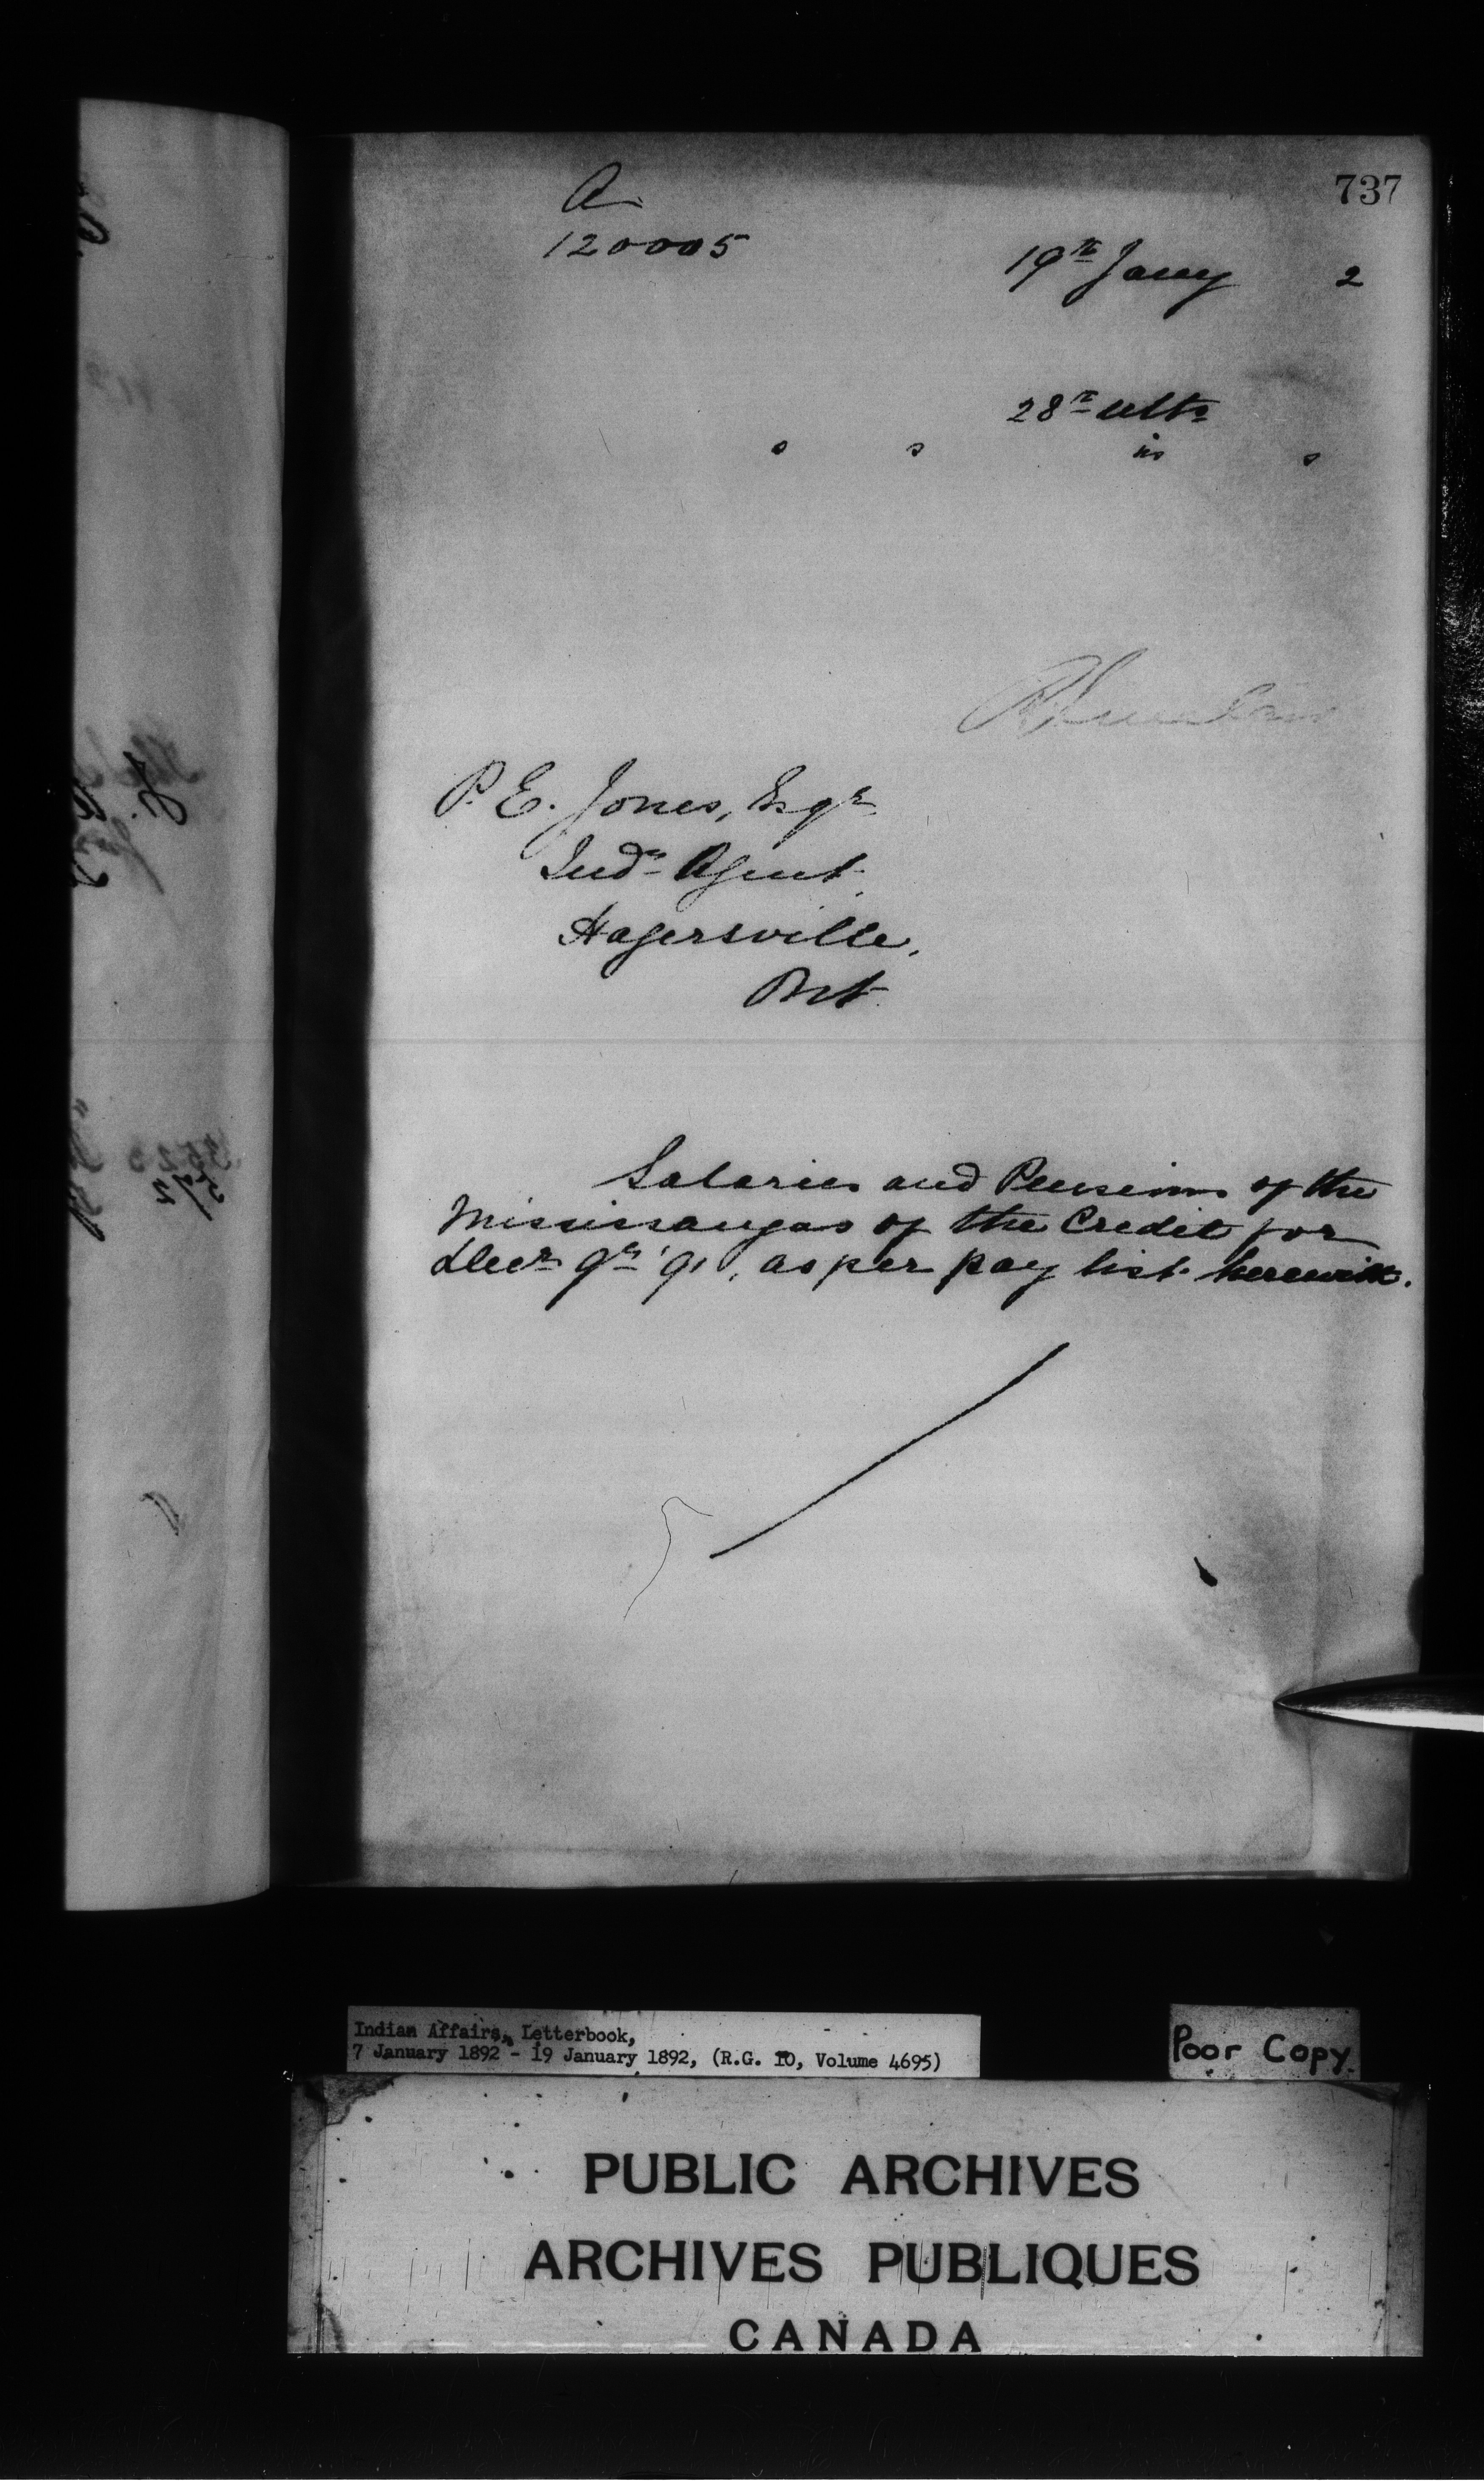 737
A
120005
19th Jany 2
28th ulto
s s is s
P. E. Jones, Esqr
Indn Agent,
Hagersville,
Ont.
Salaries and Pensions of the
Mississaugas of the Credit for
Decr qr '91, as per pay list herewith.
Indian Affairs, Letterbook,
7 January 1892 - 19 January 1892, (R.G. 10, Volume 4695)
Poor Copy.
PUBLIC ARCHIVES
ARCHIVES PUBLIQUES
CANADA